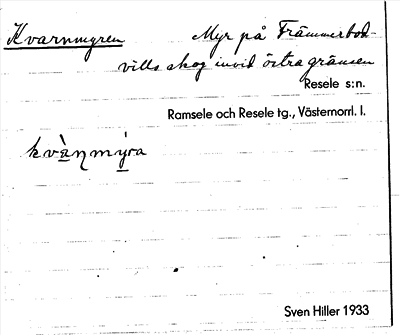 Kvarnmyren Myr på Främmerbod-
villa skog invid östra gränsen
Resele s:n.
Ramsele och Resele tg., Västernorrl. l.
kvànmýra
Sven Hiller 1933